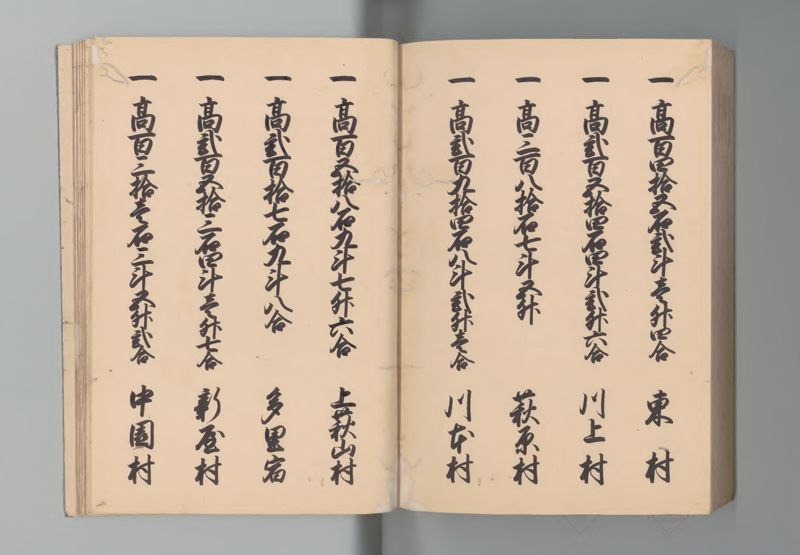 一 高百四拾五石弐斗壱升四合 東村
一 高弐百五拾四石四斗弐升六合 川上村
一 高三百八拾石七斗五升 萩原村
一 高弐百九拾四石八斗弐升壱合 川本村
一 高百五拾八石九斗七升六合 上萩山村
一 高弐百拾七石九斗八合 多里宿
一 高弐百五拾三石四斗壱升七合 新屋村
一 高百三拾壱石三斗五升弐合 中園村